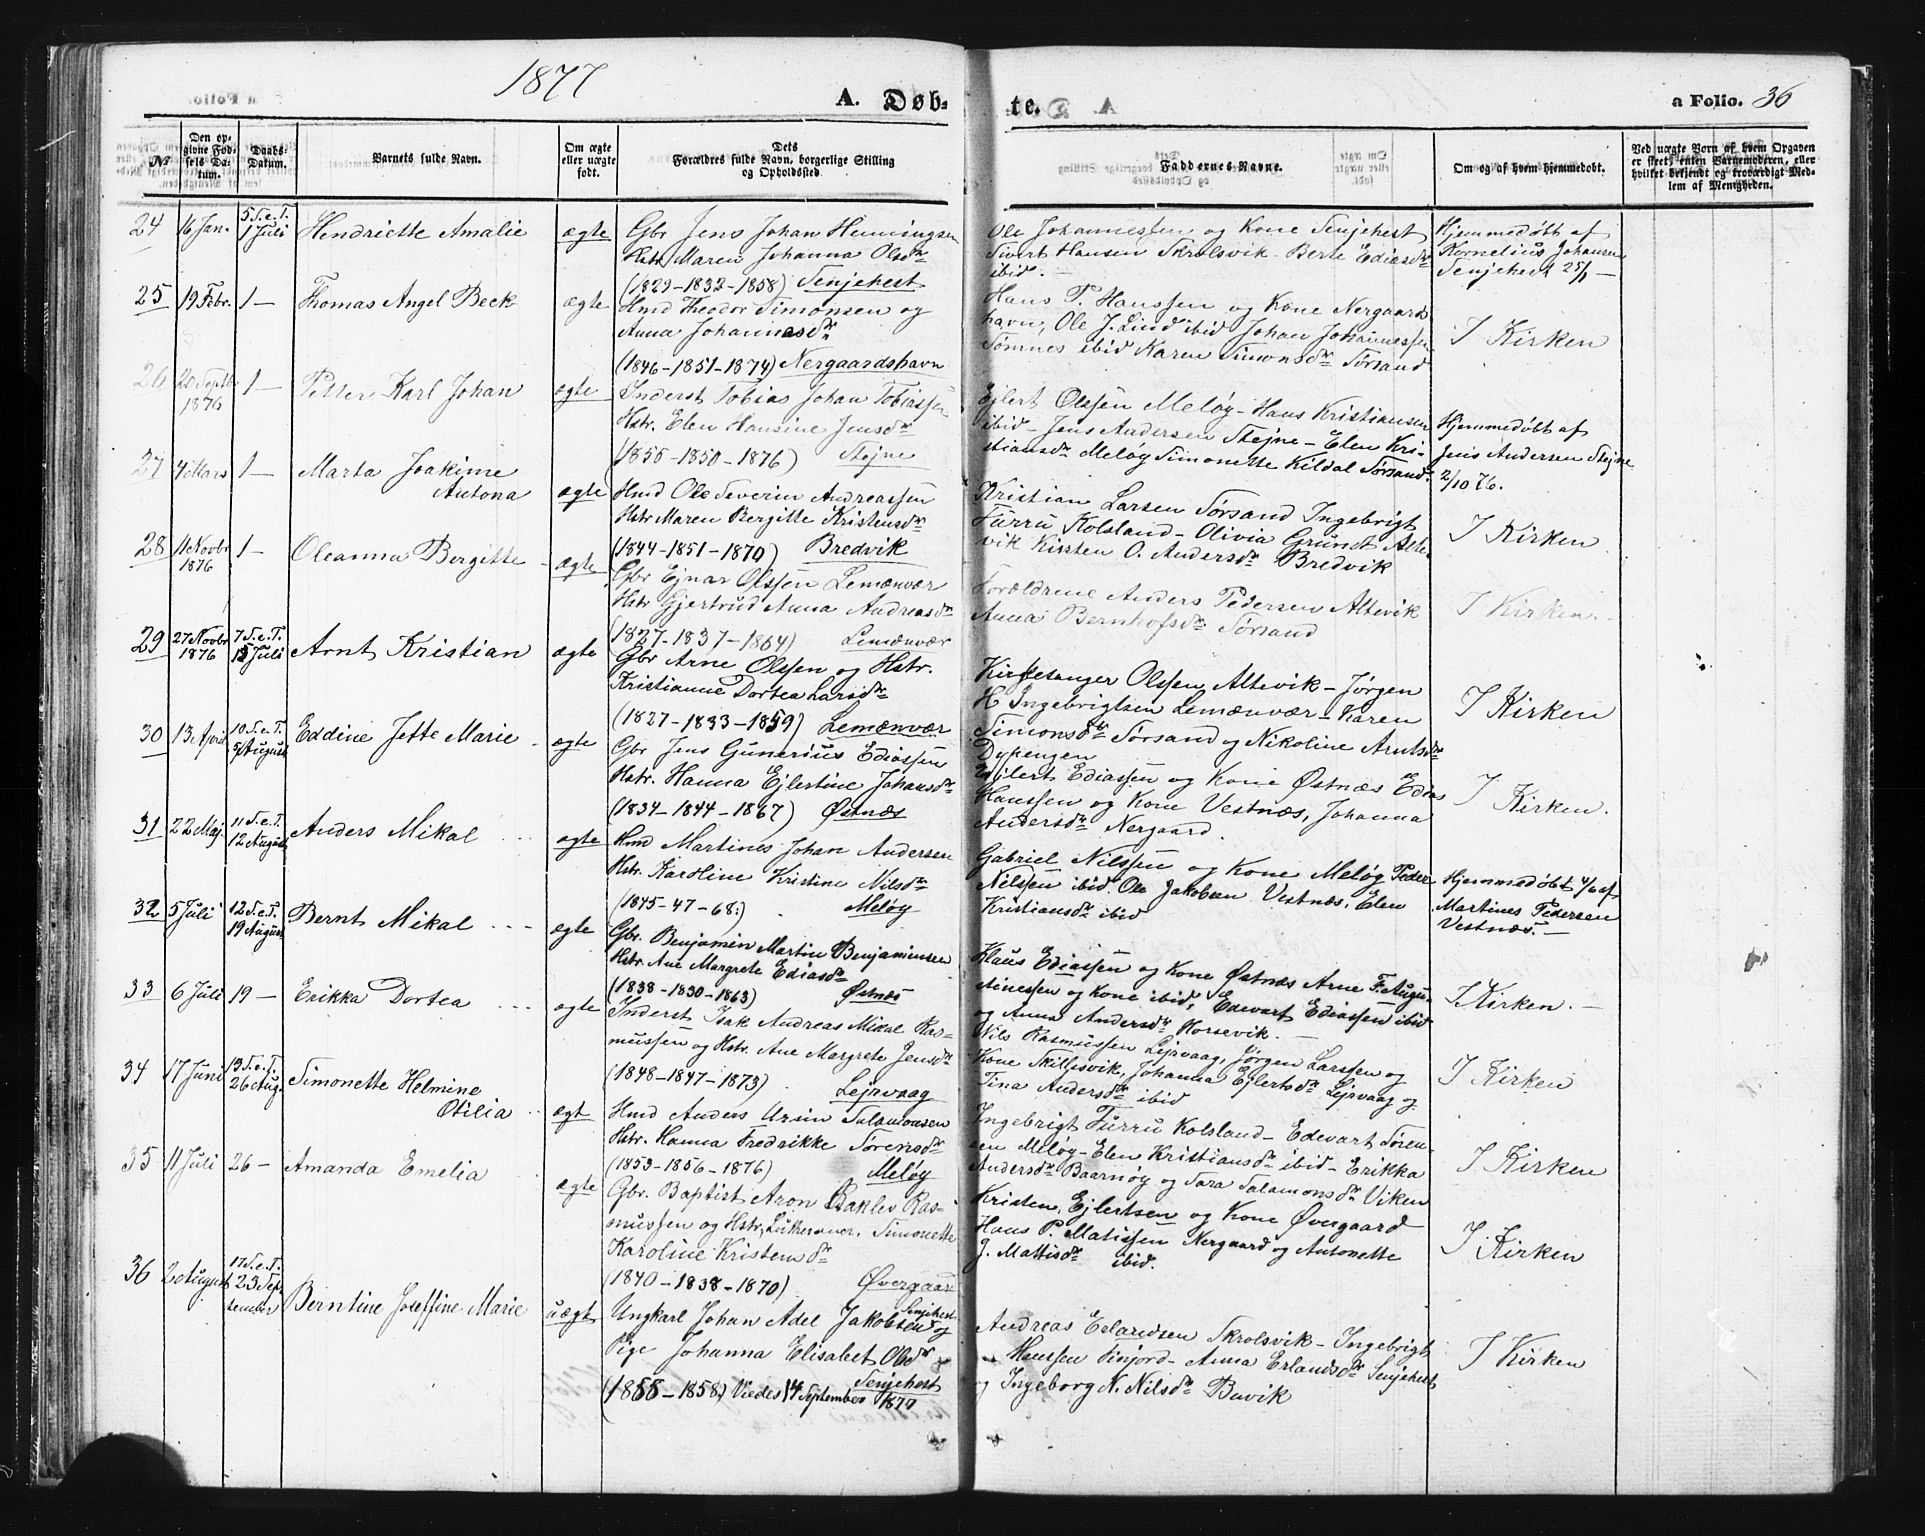 1877
A. Døb-
te.
a Folio. 36
№
Den op-
givne Fød-
sels Da-
tum.
Daabs-
Datum.
Barnets fulde Navn.
Om ægte
eller uægte
født.
Dets
Forældres fulde Navn, borgerlige Stilling
og Opholdssted.
Faddernes Navne.
Om og af hvem hjemmedøbt.
Ved uægte Børn af hvem Opgaven
er skeet, enten Barnemoderen, eller
hvilket bekjendt og troværdigt Med-
lem af Menigheden.
24 16 Jan. 5 S.e.T. 1 Juli Henriette Amalie ægte
Gbr Jens Johan Henningsen
Hstr Maren Johanna Olsdr
(1829-1832-1858) Senjehest
Ole Johannessen og Kone Senjehest
Sivert Hansen Skrolsvik Berte Ediasdr
ibid. -
Hjemmedøbt af
Kornelius Johansen
Senjehest 25/1 -
25 19 Febr. 1 - Thomas Angel Beck ægte
Hmd Theodor Simonsen og
Anna Johannesdr
(1846-1851-1874) Nergaardshavn
Hans P. Hanssen og Kone Nergaards
havn, Ole J. Lind ibid Johan Johannessen
Sømnes ibid Karen Simonsdr Sørsand
I Kirken
26 20 Septb 1876 1 - Petter Karl Johan ægte
Inderst Tobias Johan Tobiassen
Hstr. Elen Hansine Jensdr
(1855-1850-1876) Stejne
Ejlert Olssen Meløy - Hans Kristiansen
ibid - Jens Andersen Stejne - Elen Kri-
stiansdr Meløy Simonette Kildal Sørsand.
Hjemmedøbt af
Jens Andersen Stejne
2/10 76.
27 4 Mars 1 - Marta Joakime
Antona ægte
Hmd Ole Severin Andreassen
Hstr Maren Bergitte Kristensdr
(1844-1851-1870) Bredvik
Kristian Larsen Sørsand Ingebrigt
Furru Kolsland - Olivia Grundt Alte-
vik Kirsten O. Andersdr Bredvik
I Kirken
28 11 Novbr 1876 1 - Oleanna Bergitte - ægte
Gbr Ejnar Olssen Lemænvær
Hstr Gjertrud Anna Andreasdr
(1827-1837-1864) Lemænvær
Forældrene Anders Pedersen Altevik
Anna Bernhofsdr Sørsand
I Kirken.
29 27 Novbr 1876 7 S.e.T. 15 Juli Arnt Kristian ægte
Gbr Arne Olssen og Hstr.
Kristianne Dortea Larsdr
(1827-1833-1859) Lemænvær
Kirkesanger Olssen Altevik - Jørgen
H Ingebrigtsen Lemænvær - Karen
Simonsdr Sørsand og Nikoline Arntsdr
Dypengen
I Kirken
30 13 April 10 S.e.T. 5 August Eddine Jette Marie - ægte
Gbr Jens Gunerius Ediassen
Hstr. Hanna Ejlertine Johansdr
(1834-1844-1867) Østnæs
Ejlert Ediassen og Kone Østnæs Edias
Hanssen og Kone Vestnæs, Johanna
Andersdr Nergaard.
I Kirken.
31 22 Maj. 11 S.e.T. 12 August Anders Mikal ægte
Hmd Martines Johan Andersen
Hstr. Karoline Kristine Nilsdr
(1845-47-68.) Meløy
Gabriel Nilssen og Kone Meløy Peder
Nilssen ibid. Ole Jakobsen Vestnæs, Elen
Kristiansdr ibid
Hjemmedøbt 4/6 af
Martines Pedersen
Vestnæs. -
32 5 Juli 12 S.e.T. 19 August Bernt Mikal ægte
Gbr. Benjamin Martin Benjaminsen
Hstr. Ane Margrete Ediasdr
(1838-1830-1863) Østnæs
Klaus Ediassen og Kone Østnæs Arne F. Augu-
stinessen og Kone ibid, Edevart Ediassen ibid
og Anna Andersdr Korsevik. -
I Kirken. -
33 6 Juli 19 - Erikka Dortea ægte
Inderst Isak Andreas Mikal Ras-
mussen og Hstr. Ane Margrete Jensdr
(1848-1847-1873) Lejrvaag
Nils Rasmussen Lejrvaag, Jørgen Larssen og
Kone Skillesvik, Johanna Ejlertsdr Lejrvaag og
Tina Andersdr ibid
I Kirken
34 17 Juni 13 S.e.T. 26 Aug. Simonette Helmine
Otilia ægt
Hmd Anders Ursin Salamonsen
Hstr. Hanna Fredrikke Sørensdr
(1853-1856-1876) Meløy
Ingebrigt Furru Kolsland - Edevart Søren-
sen Meløy - Elen Kristiansdr ibid - Erikka
Andersdr Baarnøy og Sara Salamonsdr Viken
I Kirken
35 11 Juli 26 - Amanda Emelia ægte
Gbr. Baptist Aron Raklev Ras-
mussen og Hstr, Lutheraner, Simonette
Karoline Kristensdr
(1840-1838-1870) Øvergaard
Kristen Ejlertsen og Kone Øvergaard
Hans P. Matissen Nergaard og Antonette
J. Mattisdr ibid.
I Kirken
36 2 August 17 S.e.T. 23 Sep-
tember Berntine Joseffine Marie uægt
Ungkarl Johan Adel Jakobsen Senjehest og
Pige Johanna Elisabet Olsdr
Senjehest
(1855-1858) Viedes 14 September 1877
Andreas Erlandsen Skrolsvik - Ingebrigt
Hanssen Finjord - Anna Erlandsdr Senjehest
og Ingeborg N. Nilsdr Buvik
I Kirken